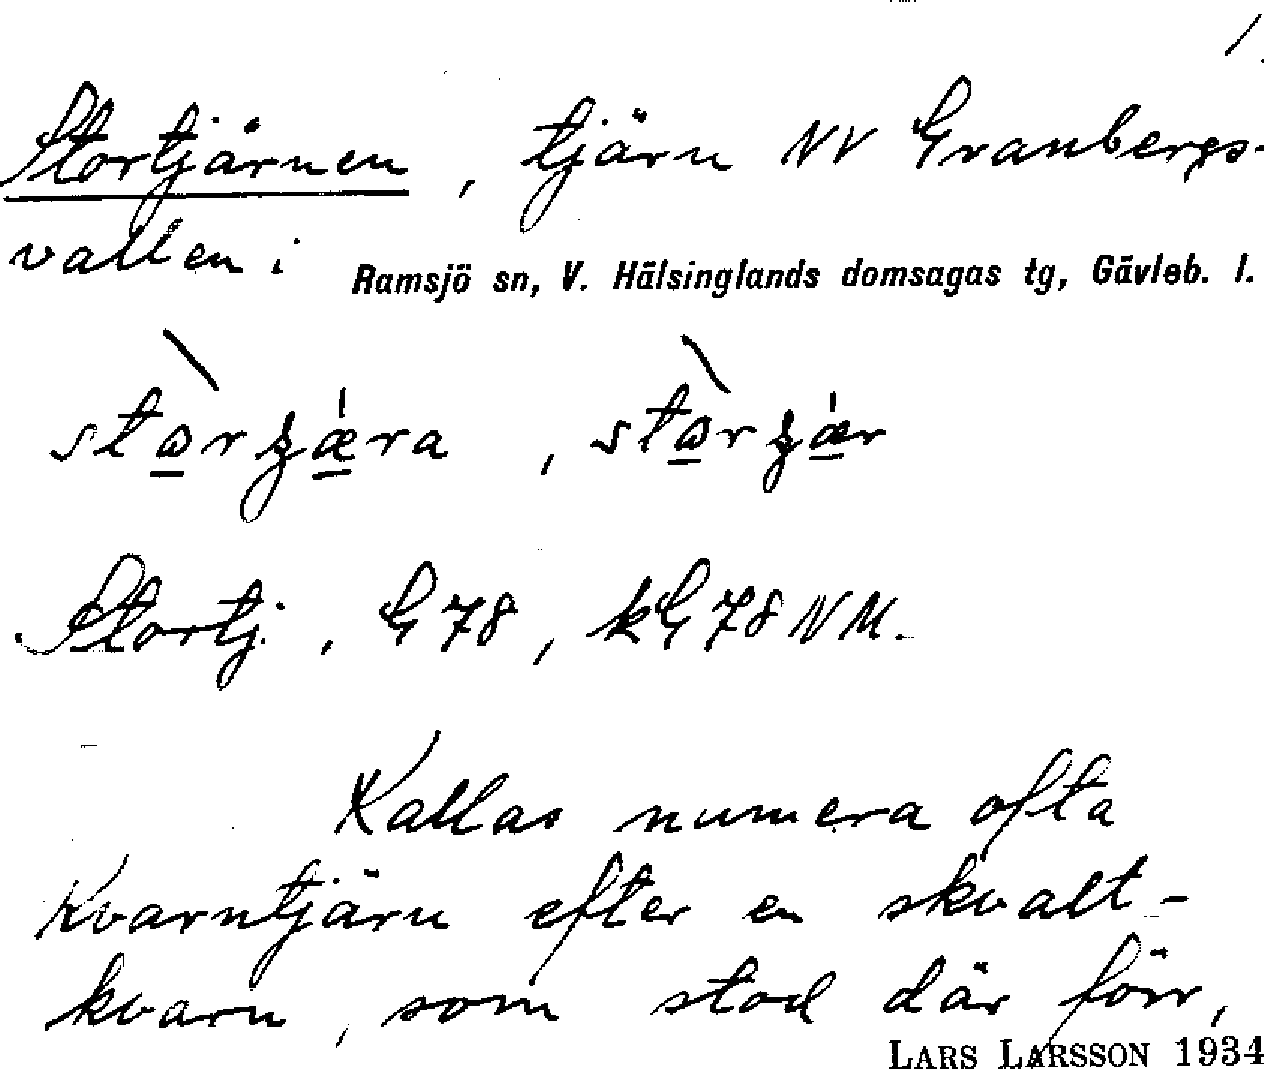 1.
Stortjärnen, tjärn NV Granbergs-
vallen i Ramsjö sn, V. Hälsinglands domsagas tg, Gävleb. l.
Stortj, G 78, kG 78 NM.
Kallas numera ofta
Kvarntjärn efter en skvalt-
kvarn, som stod där förr,
LARS LARSSON 1934